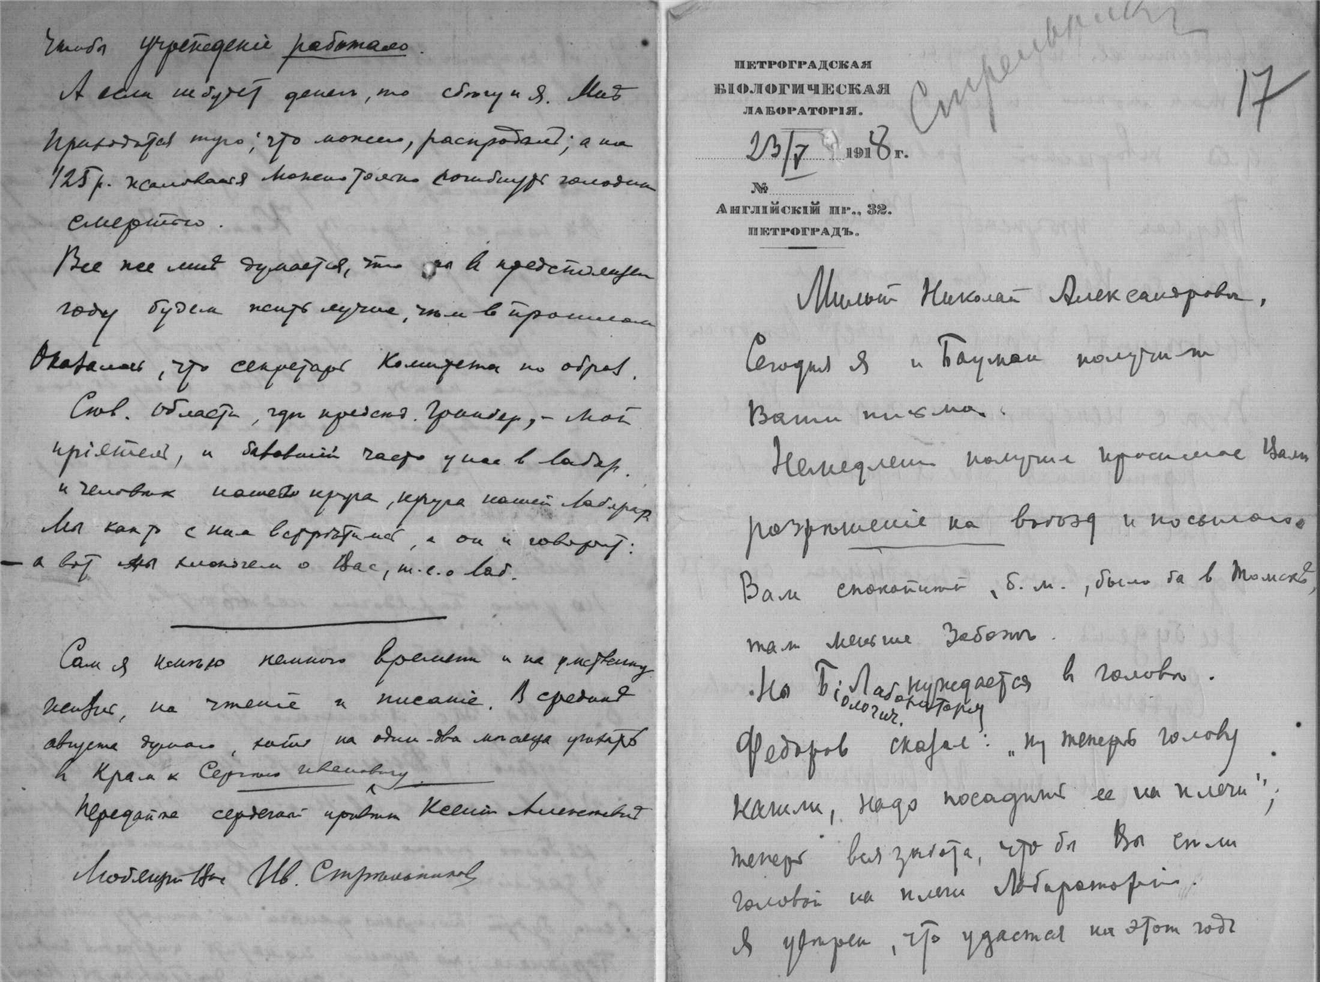 чтобы учрежденіе работало.
А если не будет денег, то сбегу и я. Мнѣ
приходится туго; что можно, распродал; а на
125 р. жалованья можно только погибнуть голодной
смертью.
Все же мнѣ думается, что мы в предстоящем
году будем жить лучше, чѣм в прошлом
Оказалось, что секретарь Комитета по образ.
Сѣв. области, гдѣ предсѣд. Гринберг, – мой
пріятель, и бывавший часто у нас в лабор.
и человѣк нашего круга, круга нашей Лаборат
Мы как-то с ним встрѣтились, а он и говорит:
– а вот мы хлопочем о Вас, т.е. о Лаб.
Сам я имѣю немного времени и на умственную
жизнь, на чтеніе и писаніе. В серединѣ
августа думаю, хотя на один-два мѣсяца уѣхать
в Крым к Сергѣю Ивановичу.
Передайте сердечный привѣт Ксеніи Алексѣевнѣ
Любящий Вас Ив. Стрѣльников
Стрельников
17
ПЕТРОГРАДСКАЯ
БІОЛОГИЧЕСКАЯ
ЛАБОРАТОРІЯ.
23/V 1918 г.
№
АНГЛІЙСКІЙ ПР., 32.
ПЕТРОГРАДЪ.
Милый Николай Александрович,
Сегодня я и Бауман получили
Ваши письма.
Немедленно получил просимое Вами
разрѣшеніе на въѣзд и посылаю.
Вам спокойнѣй, б. м., было бы в Томскѣ,
там меньше забот.
Но Біологич. Лаборатория нуждается в головѣ.
Федоров сказал: „ну теперь голову
нашли, надо посадить ее на плечи";
теперь вся забота, что бы Вы стали
головой на плечи Лаборатории".
Я увѣрен, что удастся на этот годъ